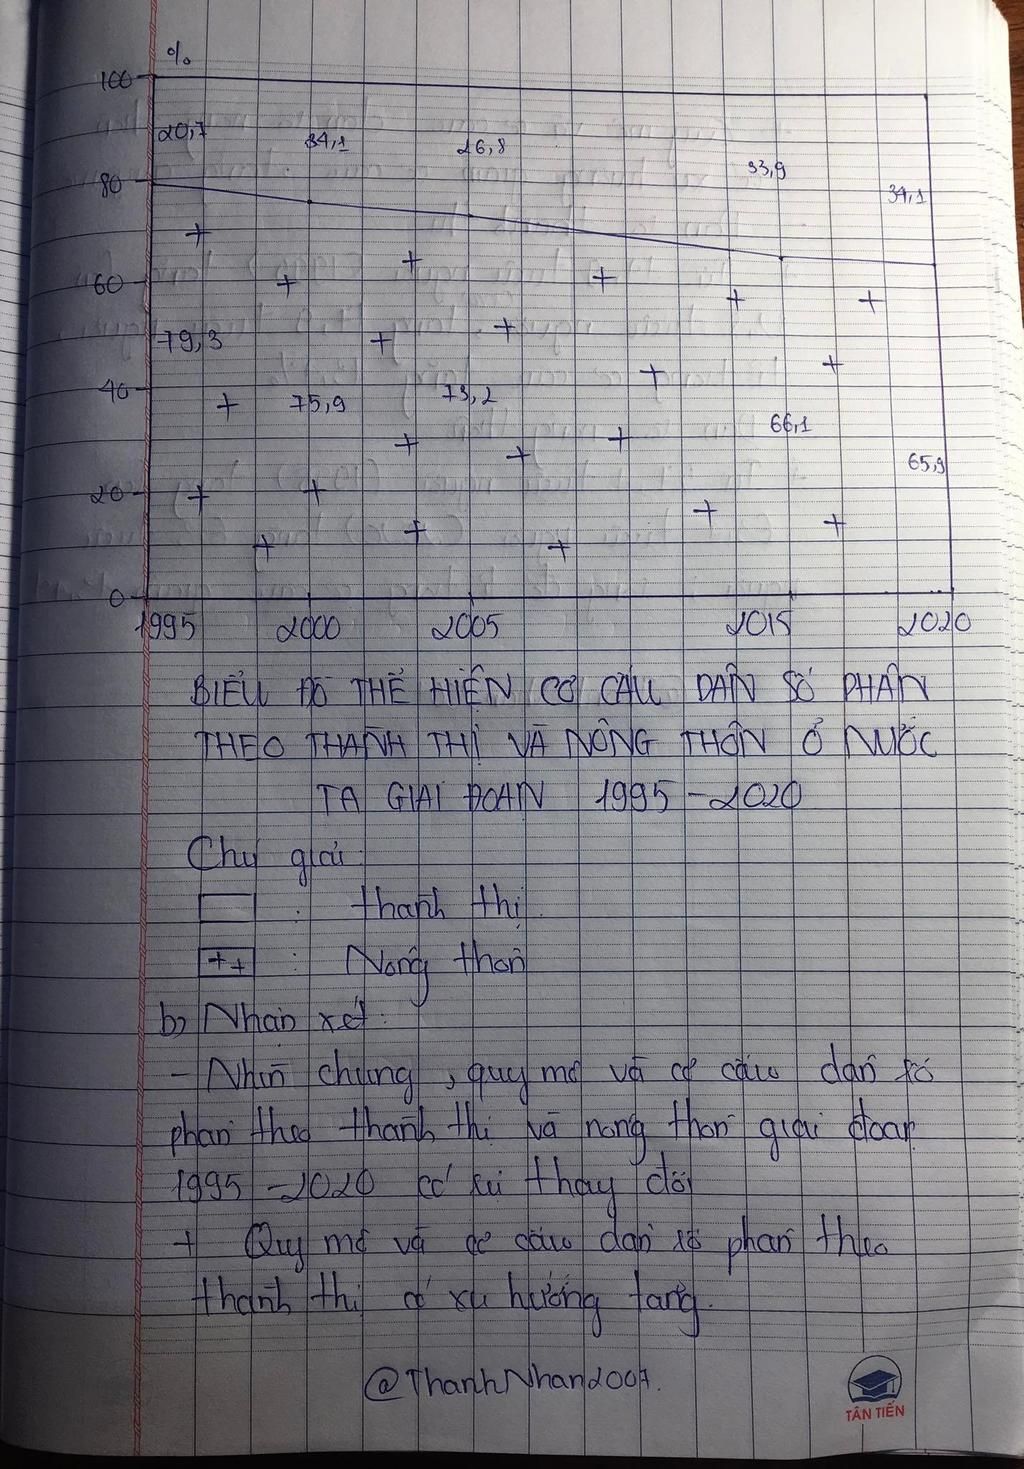 %
100
20,7 34,1 26,8 33,9 34,1
80
60
79,3
40
75,9 73,2 66,1 65,9
20
0
1995 2000 2005 2015 2020
BIỂU ĐỒ THỂ HIỆN CƠ CẤU DÂN SỐ PHÂN
THEO THÀNH THỊ VÀ NÔNG THÔN Ở NƯỚC
TA GIAI ĐOẠN 1995-2020
Chú giải:
: thành thị
++ : Nông thôn
b) Nhận xét:
- Nhìn chung, quy mô và cơ cấu dân số
phân theo thành thị và nông thôn giai đoạn
1995-2020 có sự thay đổi
+ Quy mô và cơ cấu dân số phân theo
thành thị có xu hướng tăng.
@ThanhNhan2007.
TÂN TIẾN